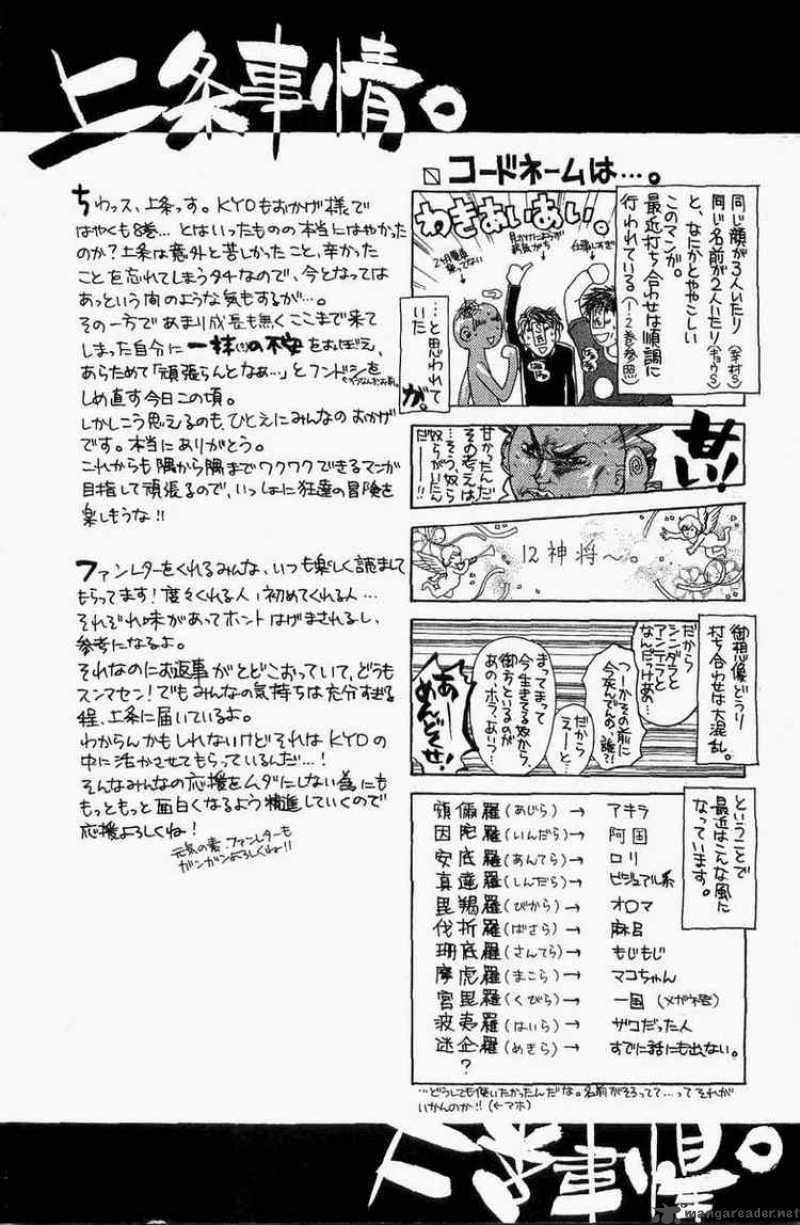 上条事情。
ちわっス、上条っす。KYOもおかげ様で
はやくも8巻…とはいったものの本当にはやかった
のか?上条は意外と苦しかったこと、辛かった
ことを忘れてしまうタチなので、今となっては
あっという間のような気もするが…。
その一方であまり成長も無くここまで来て
しまった自分に一抹の不安をおぼえ、
あらためて「頑張らんとなぁ…」とフンドシを
しめ直す今日この頃。
しかしこう思えるのも、ひとえにみんなのおかげ
です。本当にありがとう。
これからも隅から隅までワクワクできるマンガ
目指して頑張るので、いっしょに狂達の冒険を
楽しもうな!!
ファンレターをくれるみんな、いつも楽しく読ませて
もらってます!度々くれる人、初めてくれる人…
それぞれ味があってホントはげまされるし、
参考になるよ。
それなのにお返事がとどこおっていて、どうも
スンマセン!でもみんなの気持ちは充分すぎる
程、上条に届いているよ。
わからんかもしれないけどそれはKYOの
中に活かさせてもらっているんだ…!
そんなみんなの応援をムダにしない為にも
もっともっと面白くなるよう精進していくので
応援よろしくね!
元気の素・ファンレターも
ガンガンよろしくね!!
コードネームは…。
同じ顔が3人いたり(幸村S)
同じ名前が2人いたり(キョウS)
と、なにかとややこしい
このマンガ。
最近打ち合わせは順調に
行われている(1・2巻参照)
わきあいあい。
…と思われて
いた
が。
甘い!
甘かったんだ
その考えは
…そう、奴ら
奴らがいたん
だー!!
12神将〜。
御想像どうり
打ち合わせは大混乱。
だから
シンダラと
アンテラと
なんだけどあ…
つーかその前に
今死んでんの、誰?!
だから
えーと…
まってまって
今生きてる奴から、
御方といるのが
あの、ホラ、あいつ…
あー
めんどくせ!
ということで
最近はこんな風に
なっています。
頞儞羅(あじら)→ アキラ
因陀羅(いんだら)→ 阿国
安底羅(あんてら)→ ロリ
真達羅(しんだら)→ ビジュアル系
毘羯羅(びから)→ オロマ
伐折羅(ばさら)→ 麻呂
珊底羅(さんてら)→ もじもじ
摩虎羅(まこら)→ マコちゃん
宮毘羅(くびら)→ 一国(メガネ君)
波夷羅(はいら)→ ザコだった人
迷企羅(めきら)→ すでに話にも出ない。
?
…どうしても使いたかったんだな。名前がそろってて…ってそれが
いかんのか!!(←マホ)
上条事情。
mangareader.net